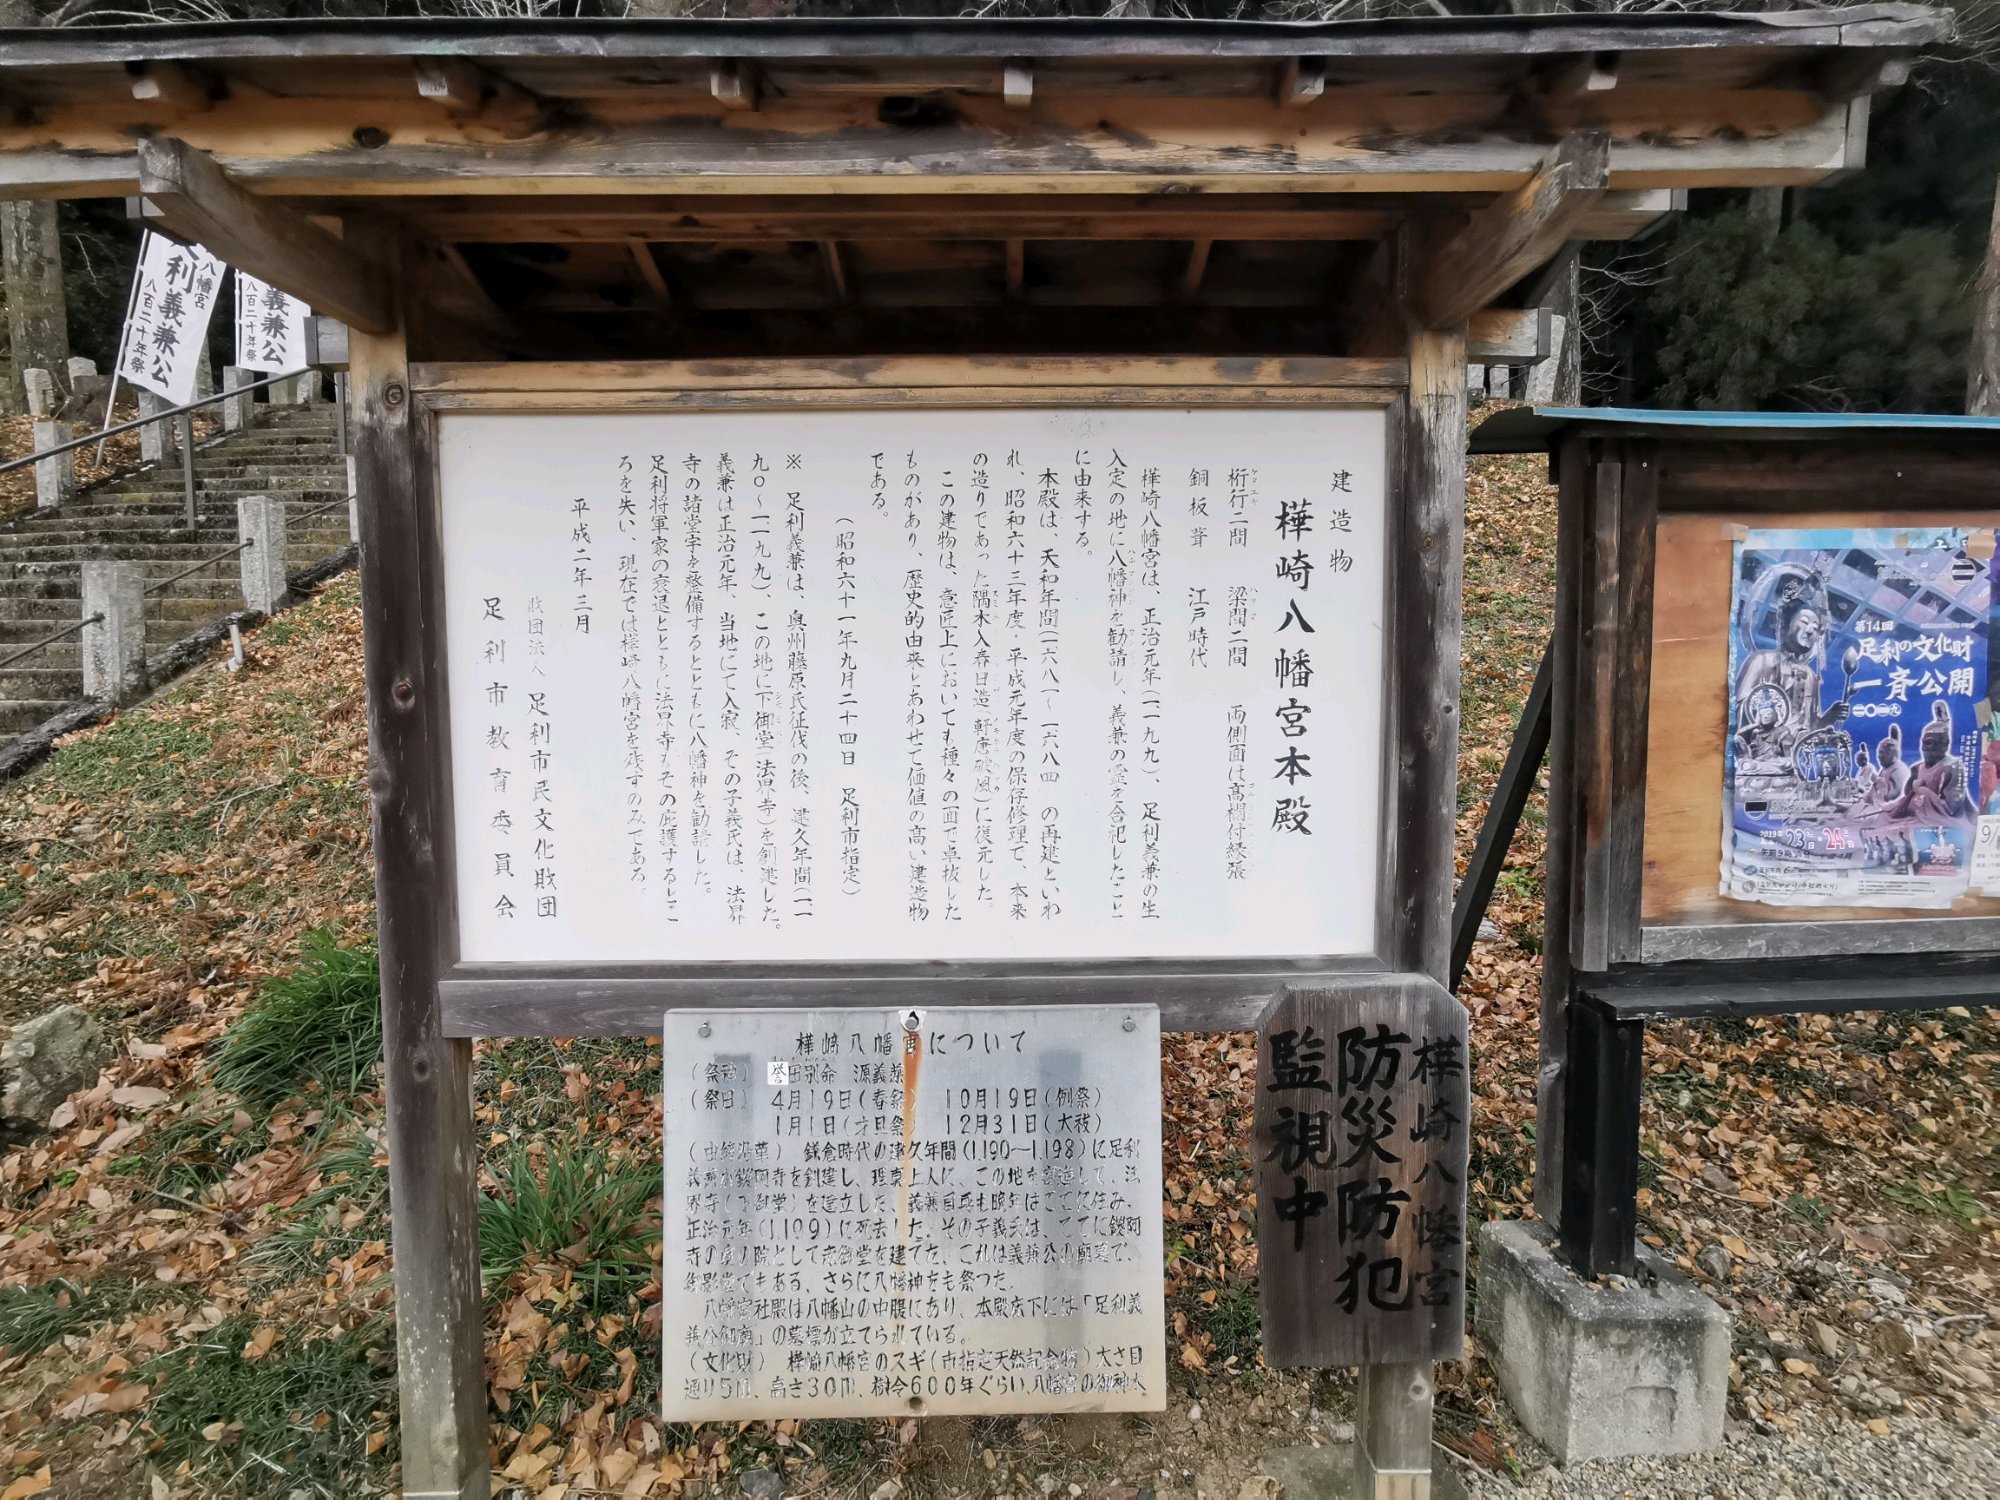 建造物
樺崎八幡宮本殿
桁行二間　梁間二間　両側面は高欄付縁張
銅板葺　江戸時代
樺崎八幡宮は、正治元年(一一九九)、足利義兼の生
入定の地に八幡神を勧請し、義兼の霊を合祀したこと
に由来する。
本殿は、天和年間(一六八一～一六八四)の再建といわ
れ、昭和六十三年度・平成元年度の保存修理で、本来
の造りであった隅木入春日造(軒唐破風)に復元した。
この建物は、意匠上においても種々の面で卓抜した
ものがあり、歴史的由来とあわせて価値の高い建造物
である。
(昭和六十一年九月二十四日　足利市指定)
※　足利義兼は、奥州藤原氏征伐の後、建久年間(一一
九〇～一一九九)、この地に下御堂(法界寺)を創建した。
義兼は正治元年、当地にて入寂、その子義氏は、法界
寺の諸堂宇を整備するとともに八幡神を勧請した。
足利将軍家の衰退とともに法界寺もその庇護するとこ
ろを失い、現在では樺崎八幡宮を残すのみである。
平成二年三月
財団法人　足利市民文化財団
足利市教育委員会
樺崎八幡宮について
(祭神)　誉田別命　源義兼
(祭日)　4月19日(春祭)　10月19日(例祭)
1月1日(才旦祭)　12月31日(大祓)
(由緒沿革)　鎌倉時代の建久年間(1,190―1,198)に足利
義兼が鑁阿寺を創建し、理真上人に、この地を寄進して、法
界寺(下御堂)を建立した、義兼自身も晩年はここに住み、
正治元年(1,199)に死去した。その子義氏は、ここに鑁阿
寺の奥の院として赤御堂を建てた、これは義兼公の廟墓で、
御影堂でもある、さらに八幡神をも祭つた。
八幡宮社殿は八幡山の中腹にあり、本殿床下には「足利義
兼公御廟」の墓標が立てられている。
(文化財)　樺崎八幡宮のスギ(市指定天然記念物)太さ目
通り5m、高さ30m、樹令600年ぐらい、八幡宮の御神木
樺崎八幡宮
防災防犯
監視中
第14回
足利の文化財
一斉公開
二〇一九
2019年
23
24
八幡宮
利義兼公
八百二十年祭
義兼公
八百二十年祭